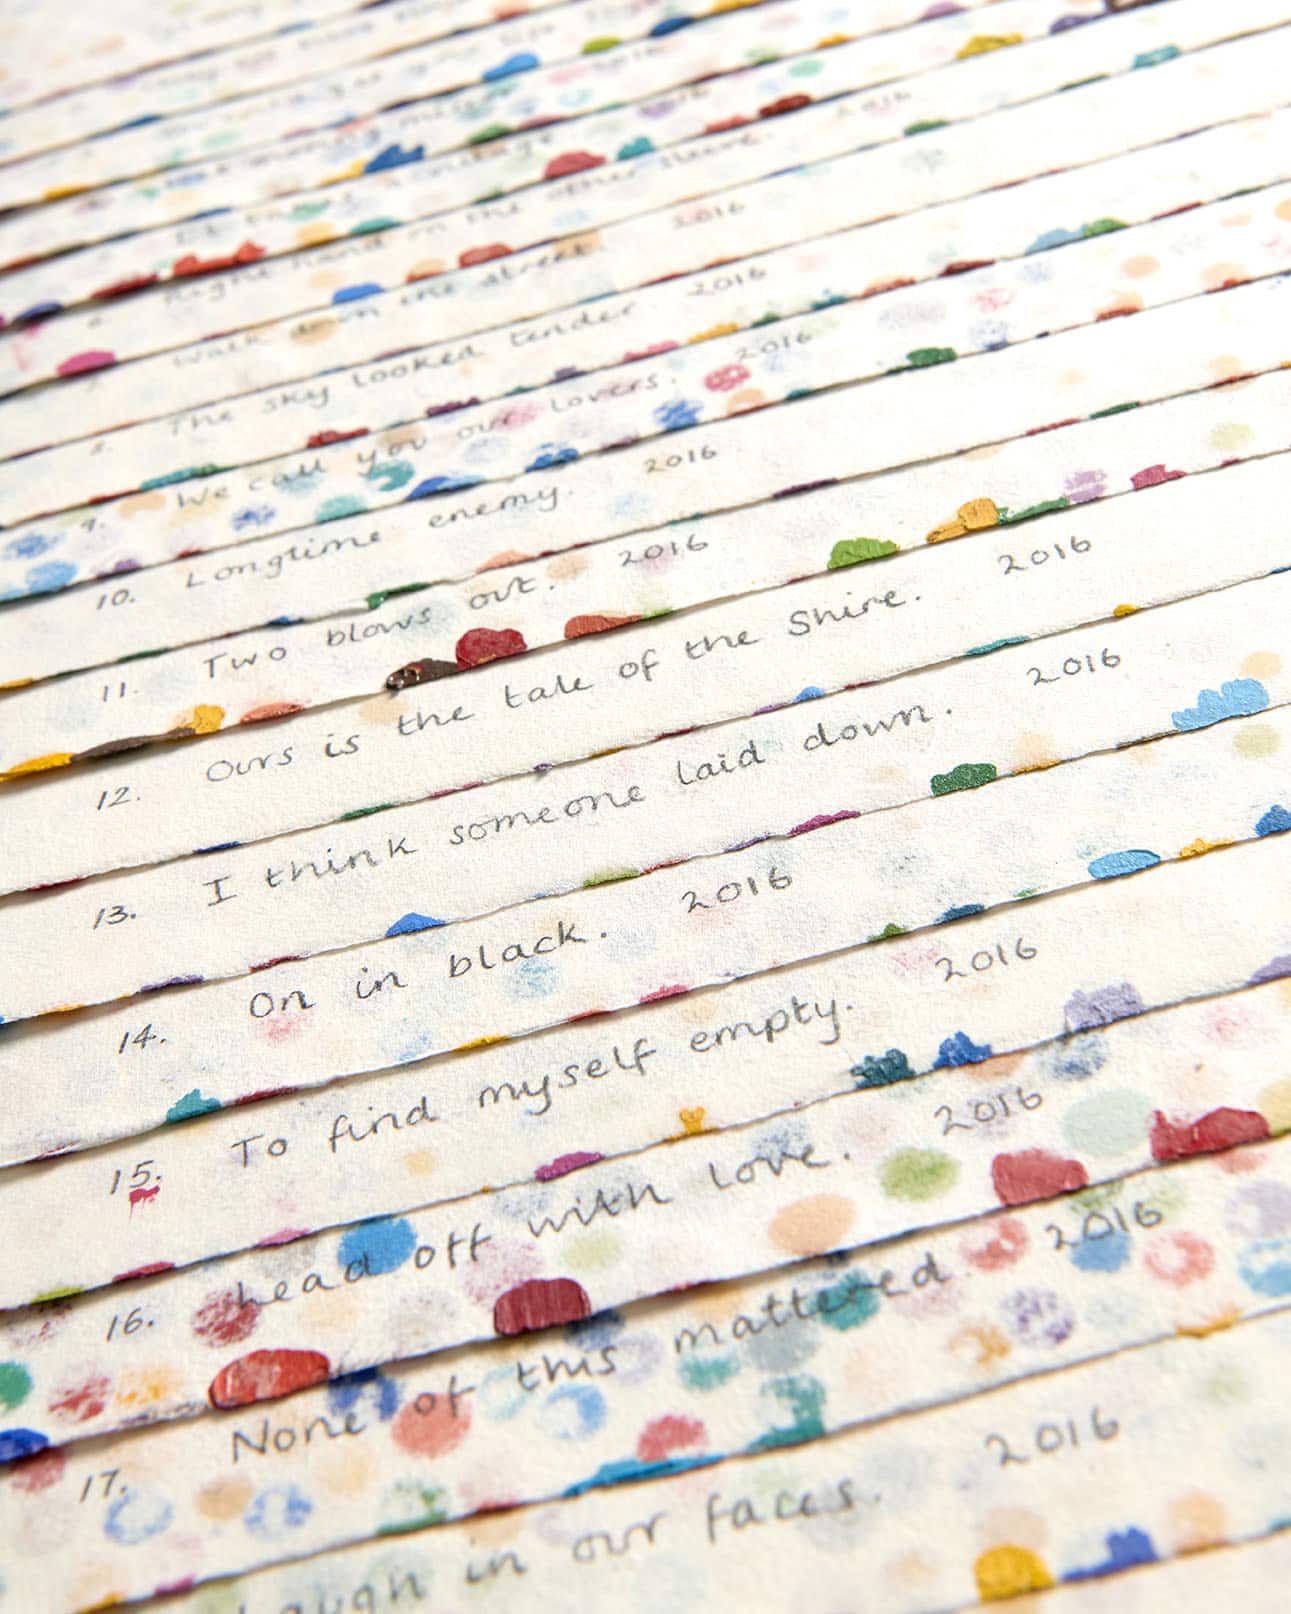 Right hand in the other sleeve. 2016
Walk the street 2016
8. The sky looked tender 2016
9. We call you our lovers. 2016
10. Longtime enemy. 2016
11. Two blows out. 2016
12. Ours is the tale of the Shire. 2016
13. I think someone laid down. 2016
14. On in black. 2016
15. To find myself empty. 2016
16. head off with love. 2016
17. None of this mattered 2016
in our faces. 2016